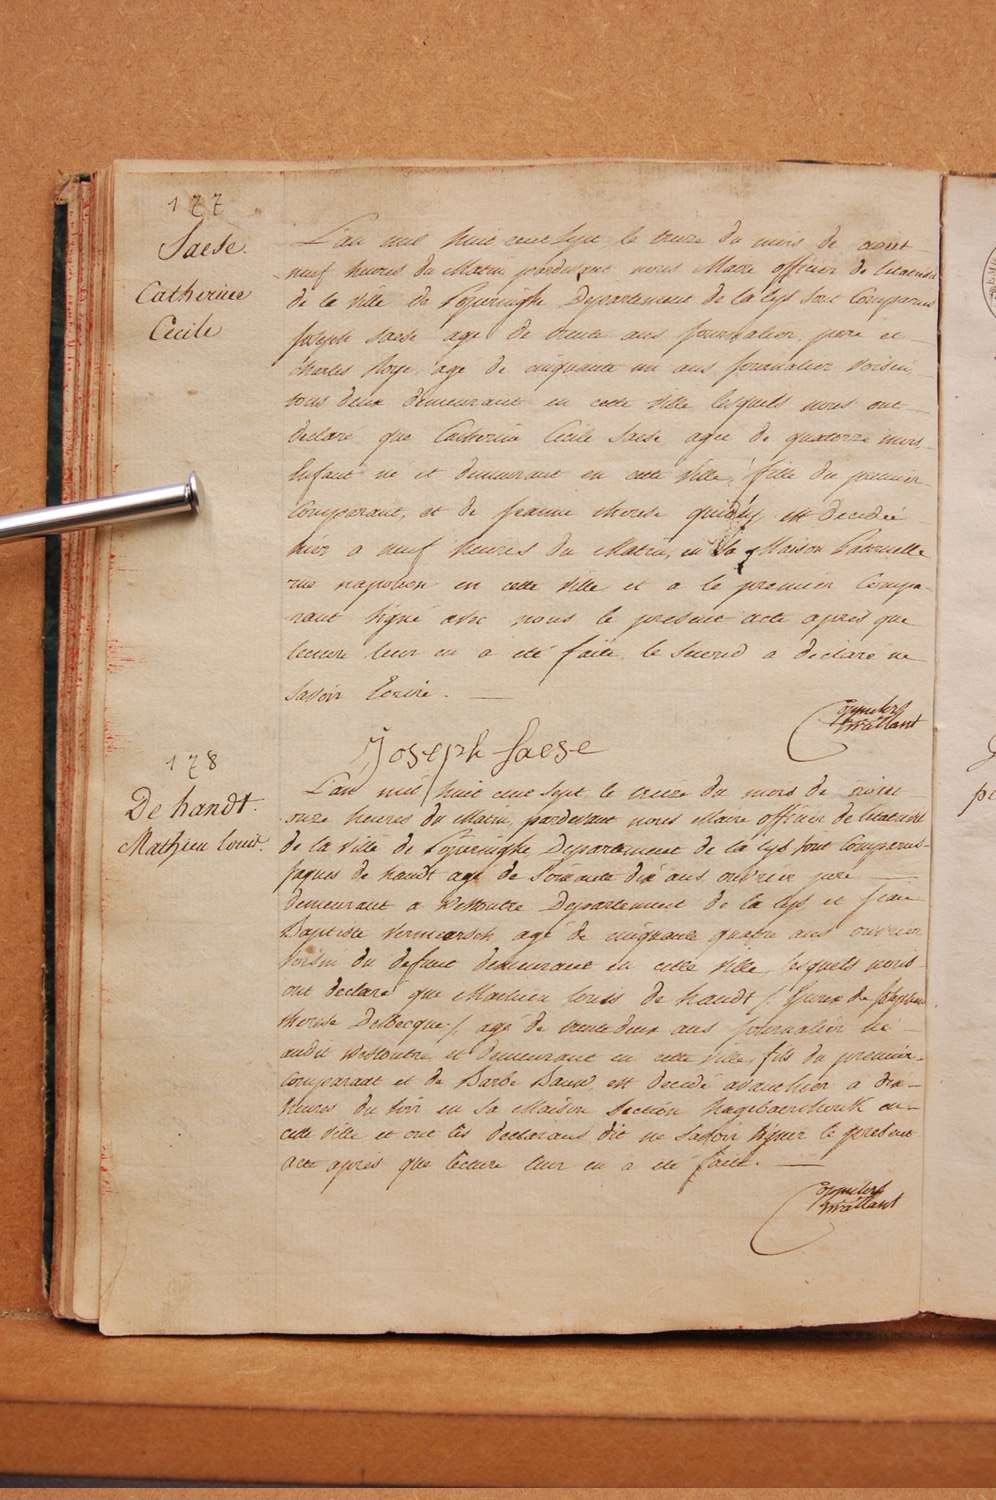 177
Saese.
Catherine
Cecile
L'an mil huit cent sept le treize du mois de aout
neuf heures du Matin pardevant nous Maire officier de letat civil
de la ville de Poperinghe Departement de la Lys sont Comparus
Joseph Saese agé de trente ans journalier pere et
Charles Hoye agé de cinquante un ans journalier voisin,
tous deux demeurant en cette ville lesquels nous ont
declaré que Catherine Cecile Saese agée de quatorze mois,
Enfant né et demeurant en cette ville, fille du premier
Comparant, et de jeanne therese est decedée
hier a neuf heures du Matin, en sa Maison Paternelle
rue napoleon en cette ville et a le premier Compa-
rant signé avec nous le present acte après que
lecture leur en a eté faite, le second a declaré ne
savoir Ecrire.
Joseph Saese
178
De handt.
Mathieu louis.
L'an mil huit cent sept le treize du mois de aout
onze heures du Matin, pardevant nous Maire officier de letat civil
de la ville de Poperinghe Departement de la Lys sont Comparus
Jaques de handt agé de soixante dix ans ouvrier pere
demeurant a Westoutre Departement de la Lys et jean
Baptiste Vermeersch agé de cinquante quatre ans ouvrier
voisin du defunt demeurant en cette ville lesquels nous
ont declaré que Mathieu louis de handt /
therese Delbecque / agé de trente deux ans journalier né
audit Westoutre et demeurant en cette ville, fils du premier
Comparant et de Barbe est decedé avanthier a dix
heures du soir en sa Maison Section en
cette ville et ont les declarans dit ne savoir signer le present
acte après que lecture leur en a eté faite.